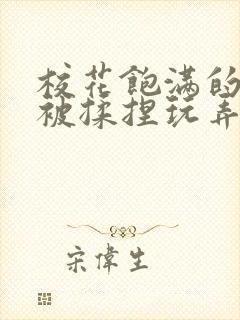 校花飽满的
被揉捏玩弄
宋偉生